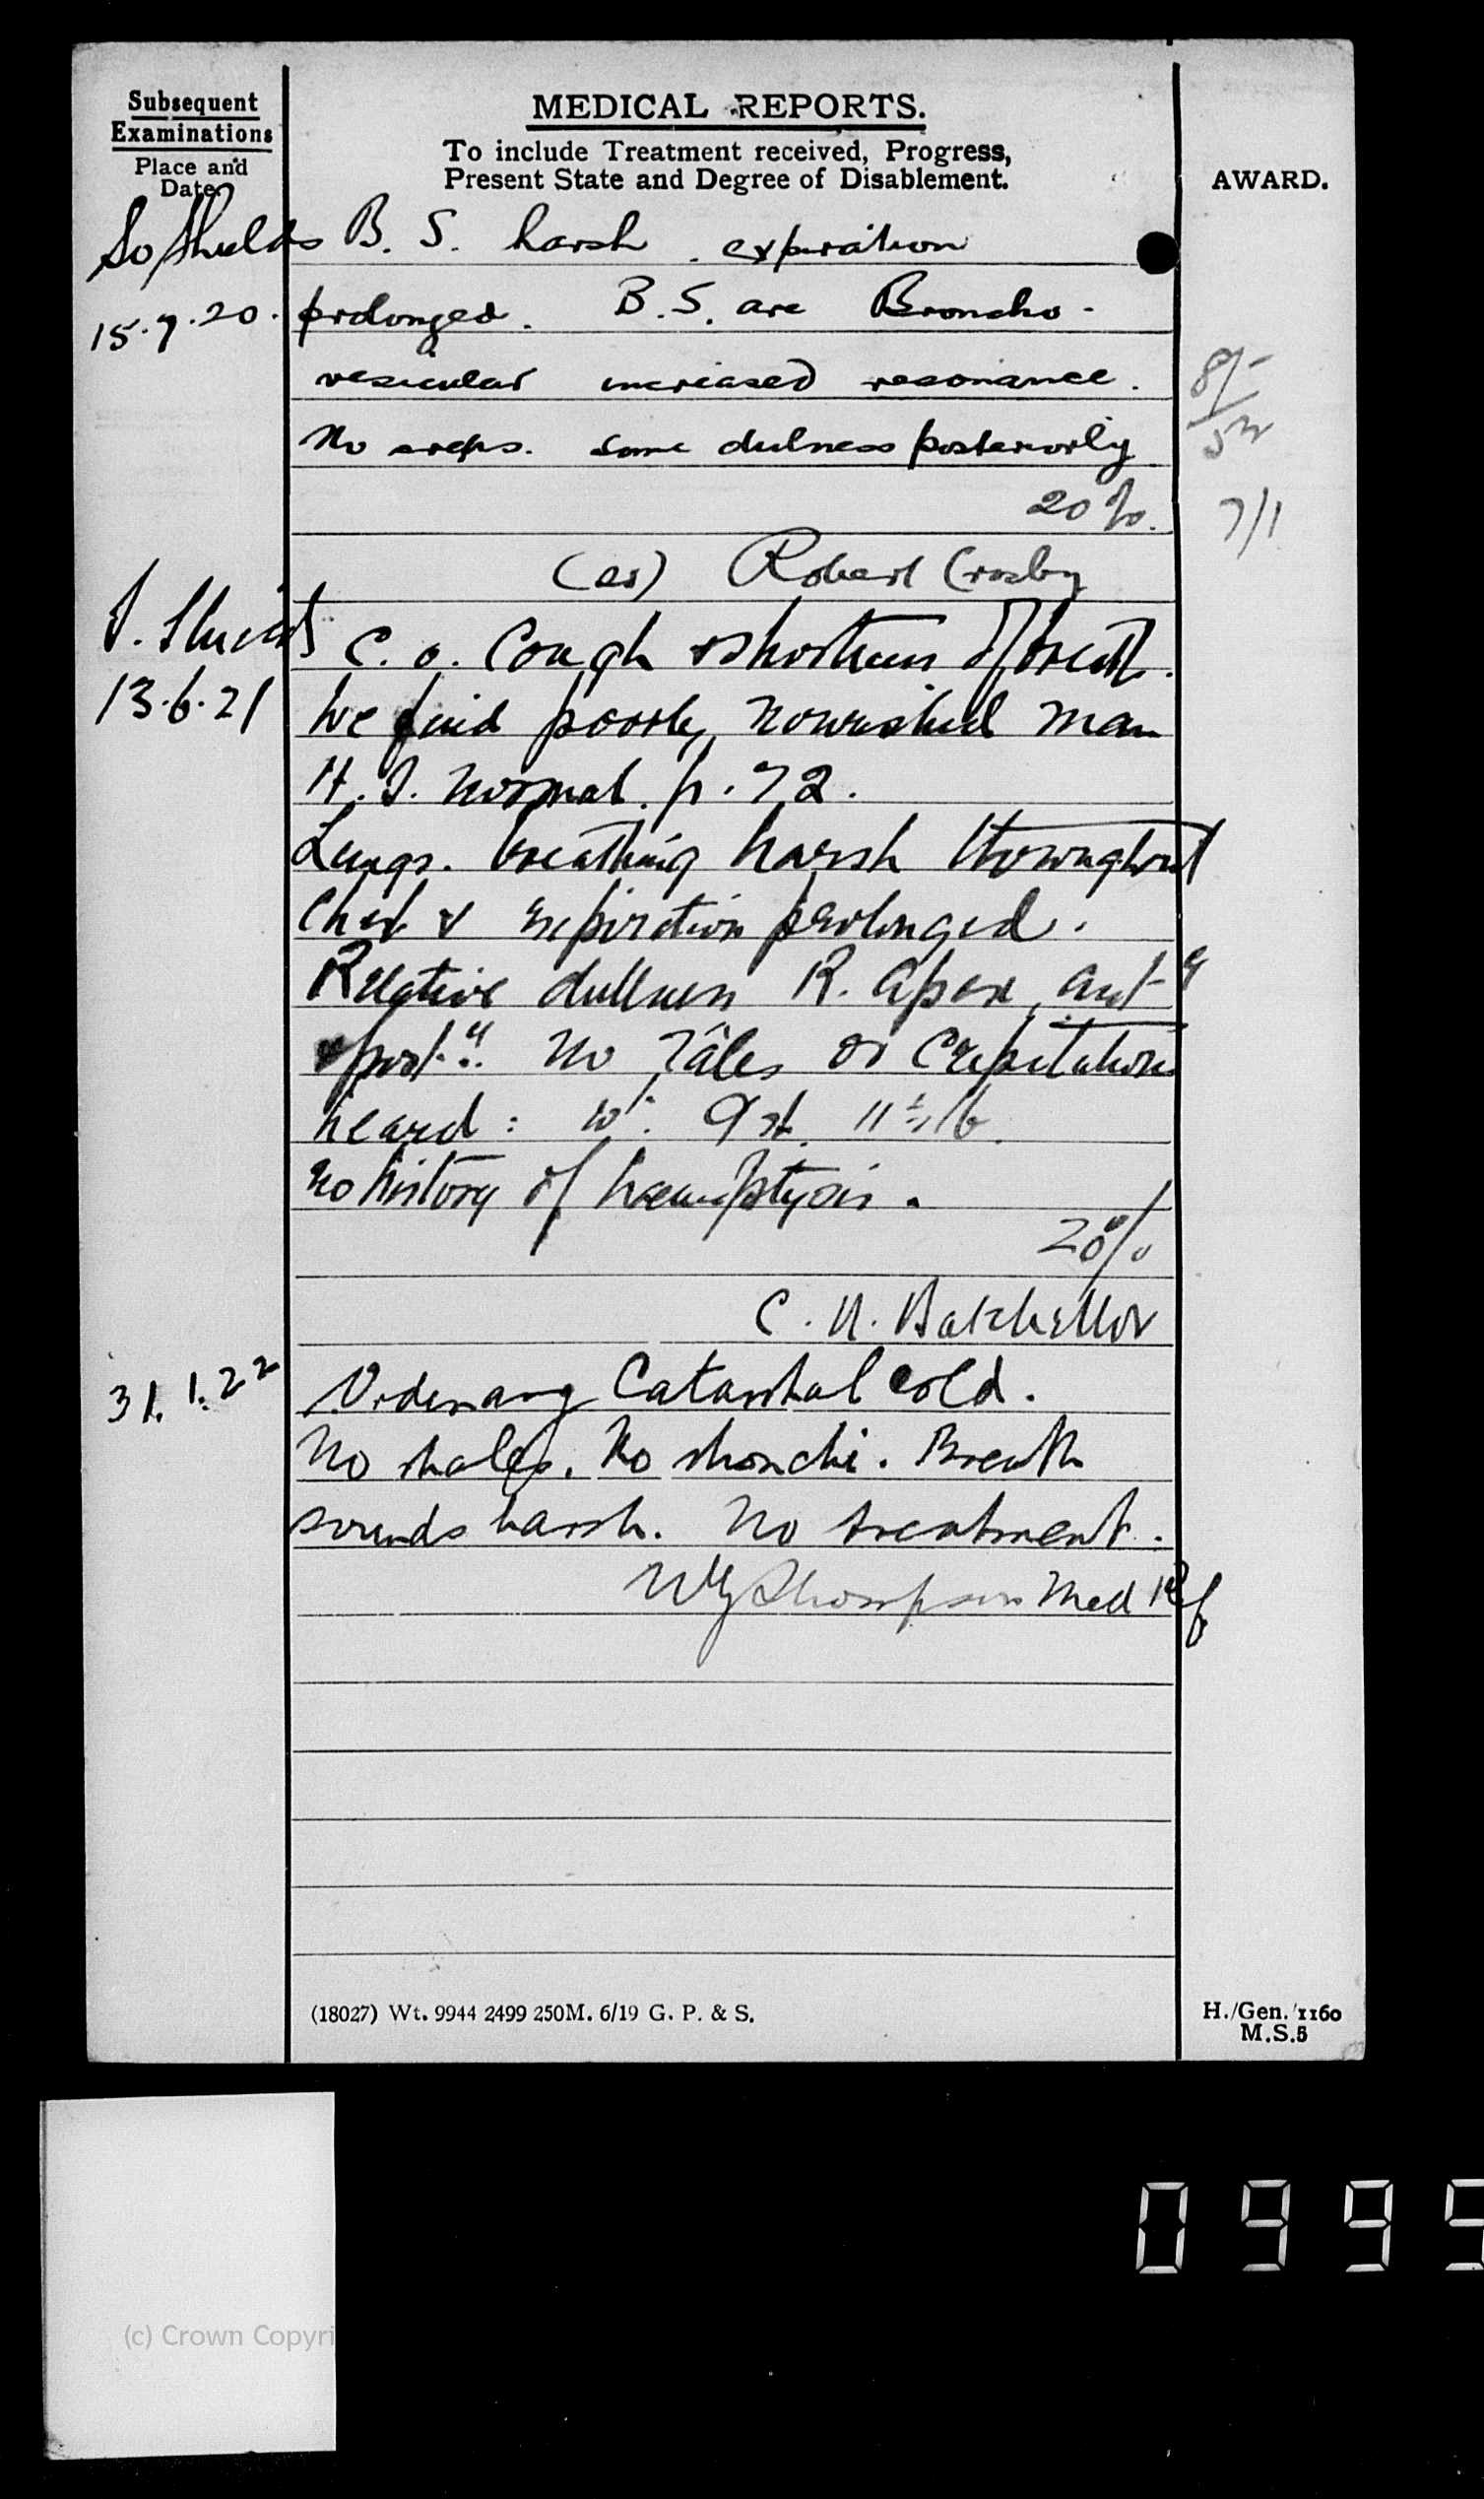 Subsequent
Examinations
Place and
Date
MEDICAL REPORTS.
To include Treatment received, Progress,
Present State and Degree of Disablement.
AWARD.
So Shields B. S. harsh. expiration
15.7.20. prolonged. B.S. are Broncho-
vesicular increased resonance.
8/-
No creps. some dulness posteriorly
20%.
7/1
Robert Crosby
S. Shields C. o. Cough & shortness of breath.
13.6.21 We find poorly nourished man
H. S. normal. p. 72.
Lungs. breathing harsh throughout
Chest & expiration prolonged.
Relative dullness R. apex, antly
& postly. No râles or Crepitations
heard: wt. 9st. 11½ lb.
no history of haemoptysis.
20%
C. N. Batchellor
31.1.22 Ordinary Catarrhal cold.
No rhales. No rhonchi. Breath
sounds harsh. No treatment.
Thompson Med Ref
(18027) Wt. 9944 2499 250M. 6/19 G. P. & S.
H./Gen./1160
M.S.5
(c) Crown Copyri
0995